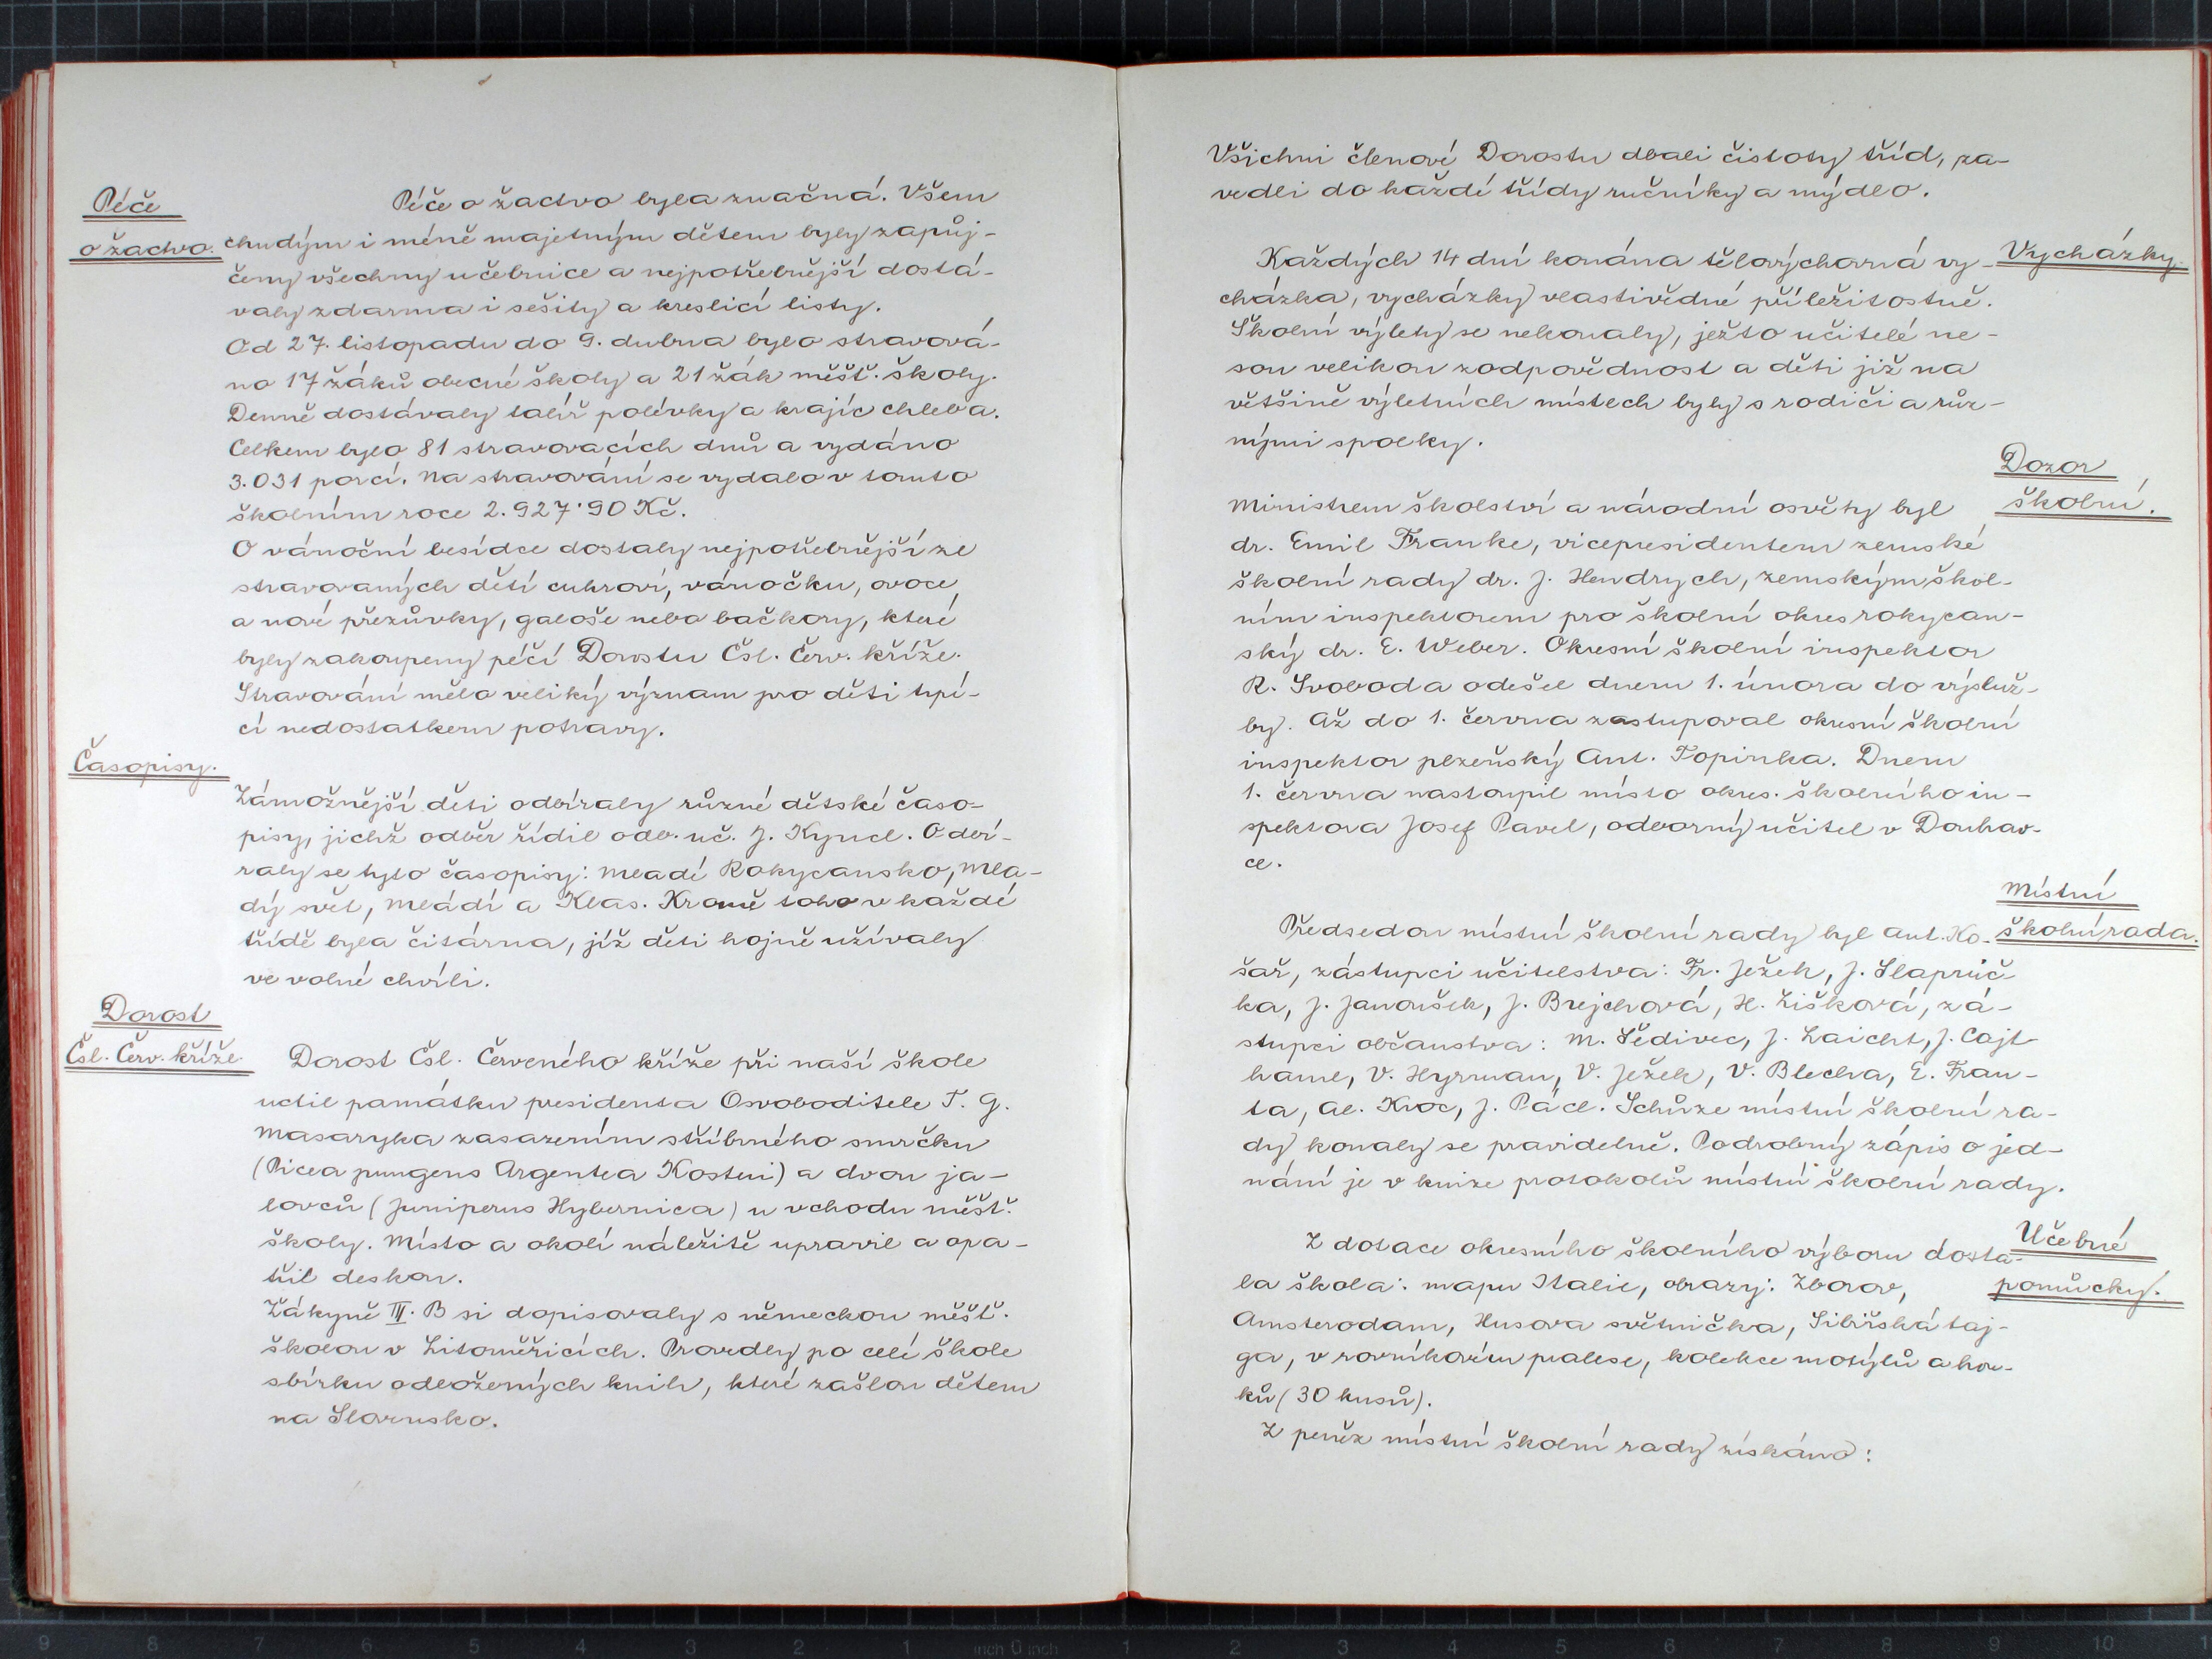 Péče
o žactvo.
Péče o žactvo byla značná. Všem
chudým i méně majetným dětem byly zapůj-
čeny všechny učebnice a nejpotřebnější dostá-
valy zdarma i sešity a kreslicí listy.
Od 27. listopadu do 9. dubna bylo stravová-
no 17 žáků obecné školy a 21 žák měšť. školy.
Denně dostávaly talíř polévky a krajíc chleba.
Celkem bylo 81 stravovacích dnů a vydáno
3.031 porcí. Na stravování se vydalo v tomto
školním roce 2.927·90 Kč.
O vánoční besídce dostaly nejpotřebnější ze
stravovaných dětí cukroví, vánočku, ovoce
a nové přezůvky, galoše nebo bačkory, které
byly zakoupeny péčí Dorostu Čsl. Červ. kříže.
Stravování mělo veliký význam pro děti trpí-
cí nedostatkem potravy.
Časopisy.
Zámožnější děti odbíraly různé dětské časo-
pisy, jichž odběr řídil odb. uč. J. Kyncl. Odbí-
raly se tyto časopisy: Mladé Rokycansko, Mla-
dý svět, Mládí a Klas. Kromě toho v každé
třídě byla čítárna, již děti hojně užívaly
ve volné chvíli.
Dorost
Čsl. Červ. kříže.
Dorost Čsl. Červeného kříže při naší škole
uctil památku presidenta Osvoboditele T. G.
Masaryka zasazením stříbrného smrčku
(Picea pungens Argentea Kosteri) a dvou ja-
lovců (Juniperus Hybernica) u vchodu měšť.
školy. Místo a okolí náležitě upravil a opa-
třil deskou.
Žákyně III. B si dopisovaly s německou měšť.
školou v Litoměřicích. Provedly po celé škole
sbírku odložených knih, které zašlou dětem
na Slovensko.
Všichni členové Dorostu dbali čistoty tříd, za-
vedli do každé třídy ručníky a mýdlo.
Vycházky.
Každých 14 dní konána tělovýchovná vy-
cházka, vycházky vlastivědné příležitostně.
Školní výlety se nekonaly, ježto učitelé ne-
sou velikou zodpovědnost a děti již na
většině výletních místech byly s rodiči a růz-
nými spolky.
Dozor
školní.
Ministrem školství a národní osvěty byl
dr. Emil Franke, vicepresidentem zemské
školní rady dr. J. Hendrych, zemským škol-
ním inspektorem pro školní okres rokycan-
ský dr. E. Weber. Okresní školní inspektor
R. Svoboda odešel dnem 1. února do výsluž-
by. Až do 1. června zastupoval okresní školní
inspektor plzeňský Ant. Topinka. Dnem
1. června nastoupil místo okres. školního in-
spektora Josef Pavel, odborný učitel v Doubrav-
ce.
Místní
školní rada.
Předsedou místní školní rady byl Ant. Ko-
šař, zástupci učitelstva: Fr. Ježek, J. Slaprůč
ka, J. Janoušek, J. Brejchová, H. Lišková, zá-
stupci občanstva: M. Šedivec, J. Laicht, J. Cajt
haml, V. Hyrman, V. Ježek, V. Blecha, E. Fran-
ta, Al. Kroc, J. Pácl. Schůze místní školní ra-
dy konaly se pravidelně. Podrobný zápis o jed-
nání je v knize protokolů místní školní rady.
Učebné
pomůcky.
Z dotace okresního školního výboru dosta-
la škola: mapu Italie, obrazy: Zborov,
Amsterodam, Husova světnička, Sibiřská taj-
ga, v rovníkovém pralese, kolekce motýlů a brou-
ků (30 kusů).
Z peněz místní školní rady získáno: